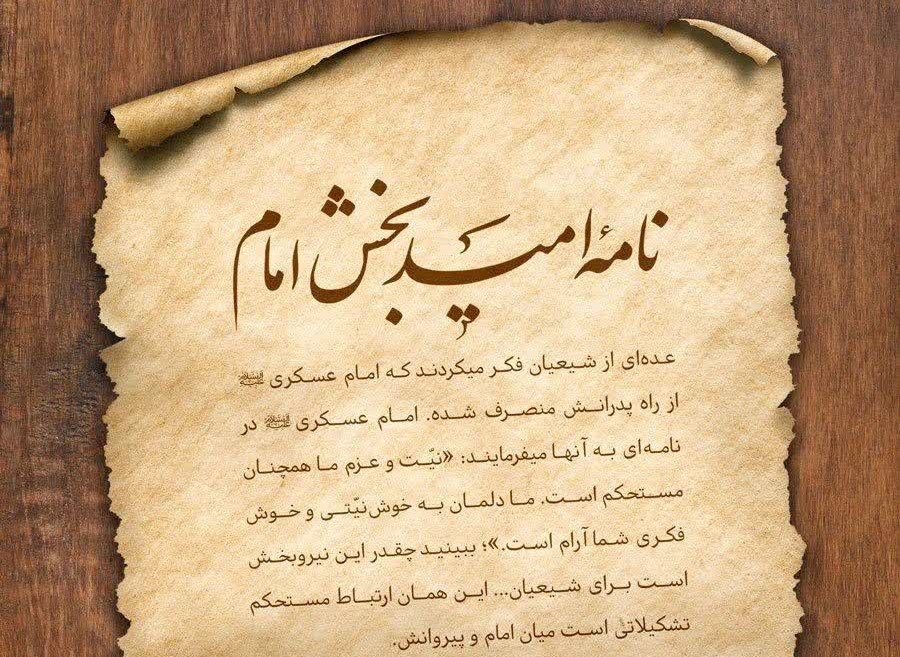 نامهٔ امیدبخش امام
عده‌ای از شیعیان فکر میکردند که امام عسکری علیه‌السلام
از راه پدرانش منصرف شده. امام عسکری علیه‌السلام در
نامه‌ای به آنها میفرمایند: «نیّت و عزم ما همچنان
مستحکم است. ما دلمان به خوش‌نیّتی و خوش
فکری شما آرام است.»؛ ببینید چقدر این نیروبخش
است برای شیعیان... این همان ارتباط مستحکم
تشکیلاتی است میان امام و پیروانش.